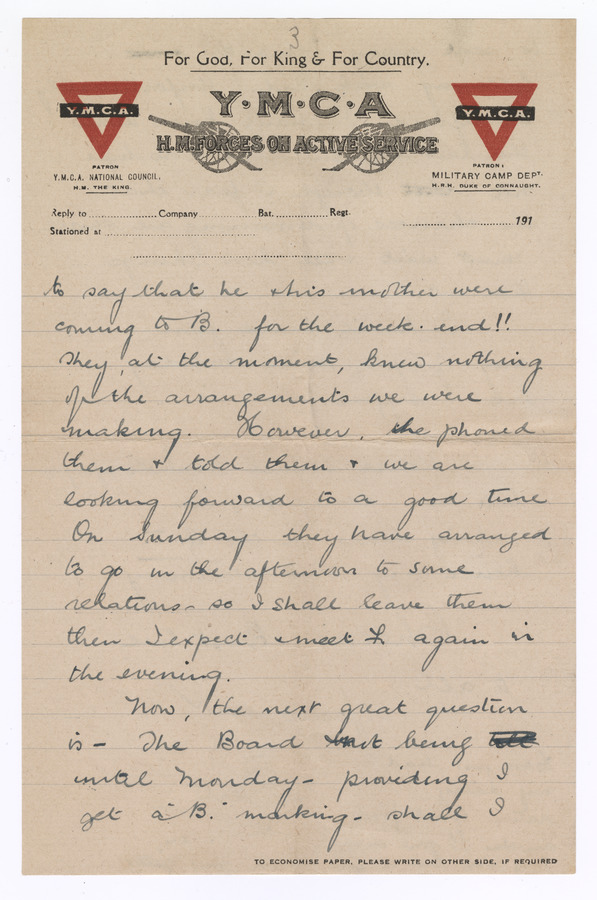 3
For God, For King & For Country.
Y.M.C.A.
Y·M·C·A
Y.M.C.A.
H.M. FORCES ON ACTIVE SERVICE
PATRON
Y.M.C.A. NATIONAL COUNCIL.
H.M. THE KING.
PATRON:
MILITARY CAMP DEPT.
H.R.H. DUKE OF CONNAUGHT.
Reply to Company Bat. Regt.
191
Stationed at
to say that he & his mother were
coming to B. for the week-end!!
They, at the moment, knew nothing
of the arrangements we were
making. However, he phoned
them & told them & we are
looking forward to a good time
On Sunday they have arranged
to go in the afternoon to some
relations - so I shall leave them
then I expect & meet L again in
the evening.
Now, the next great question
is - The Board not being
until Monday - providing I
get a "B." marking - shall I
TO ECONOMISE PAPER, PLEASE WRITE ON OTHER SIDE, IF REQUIRED